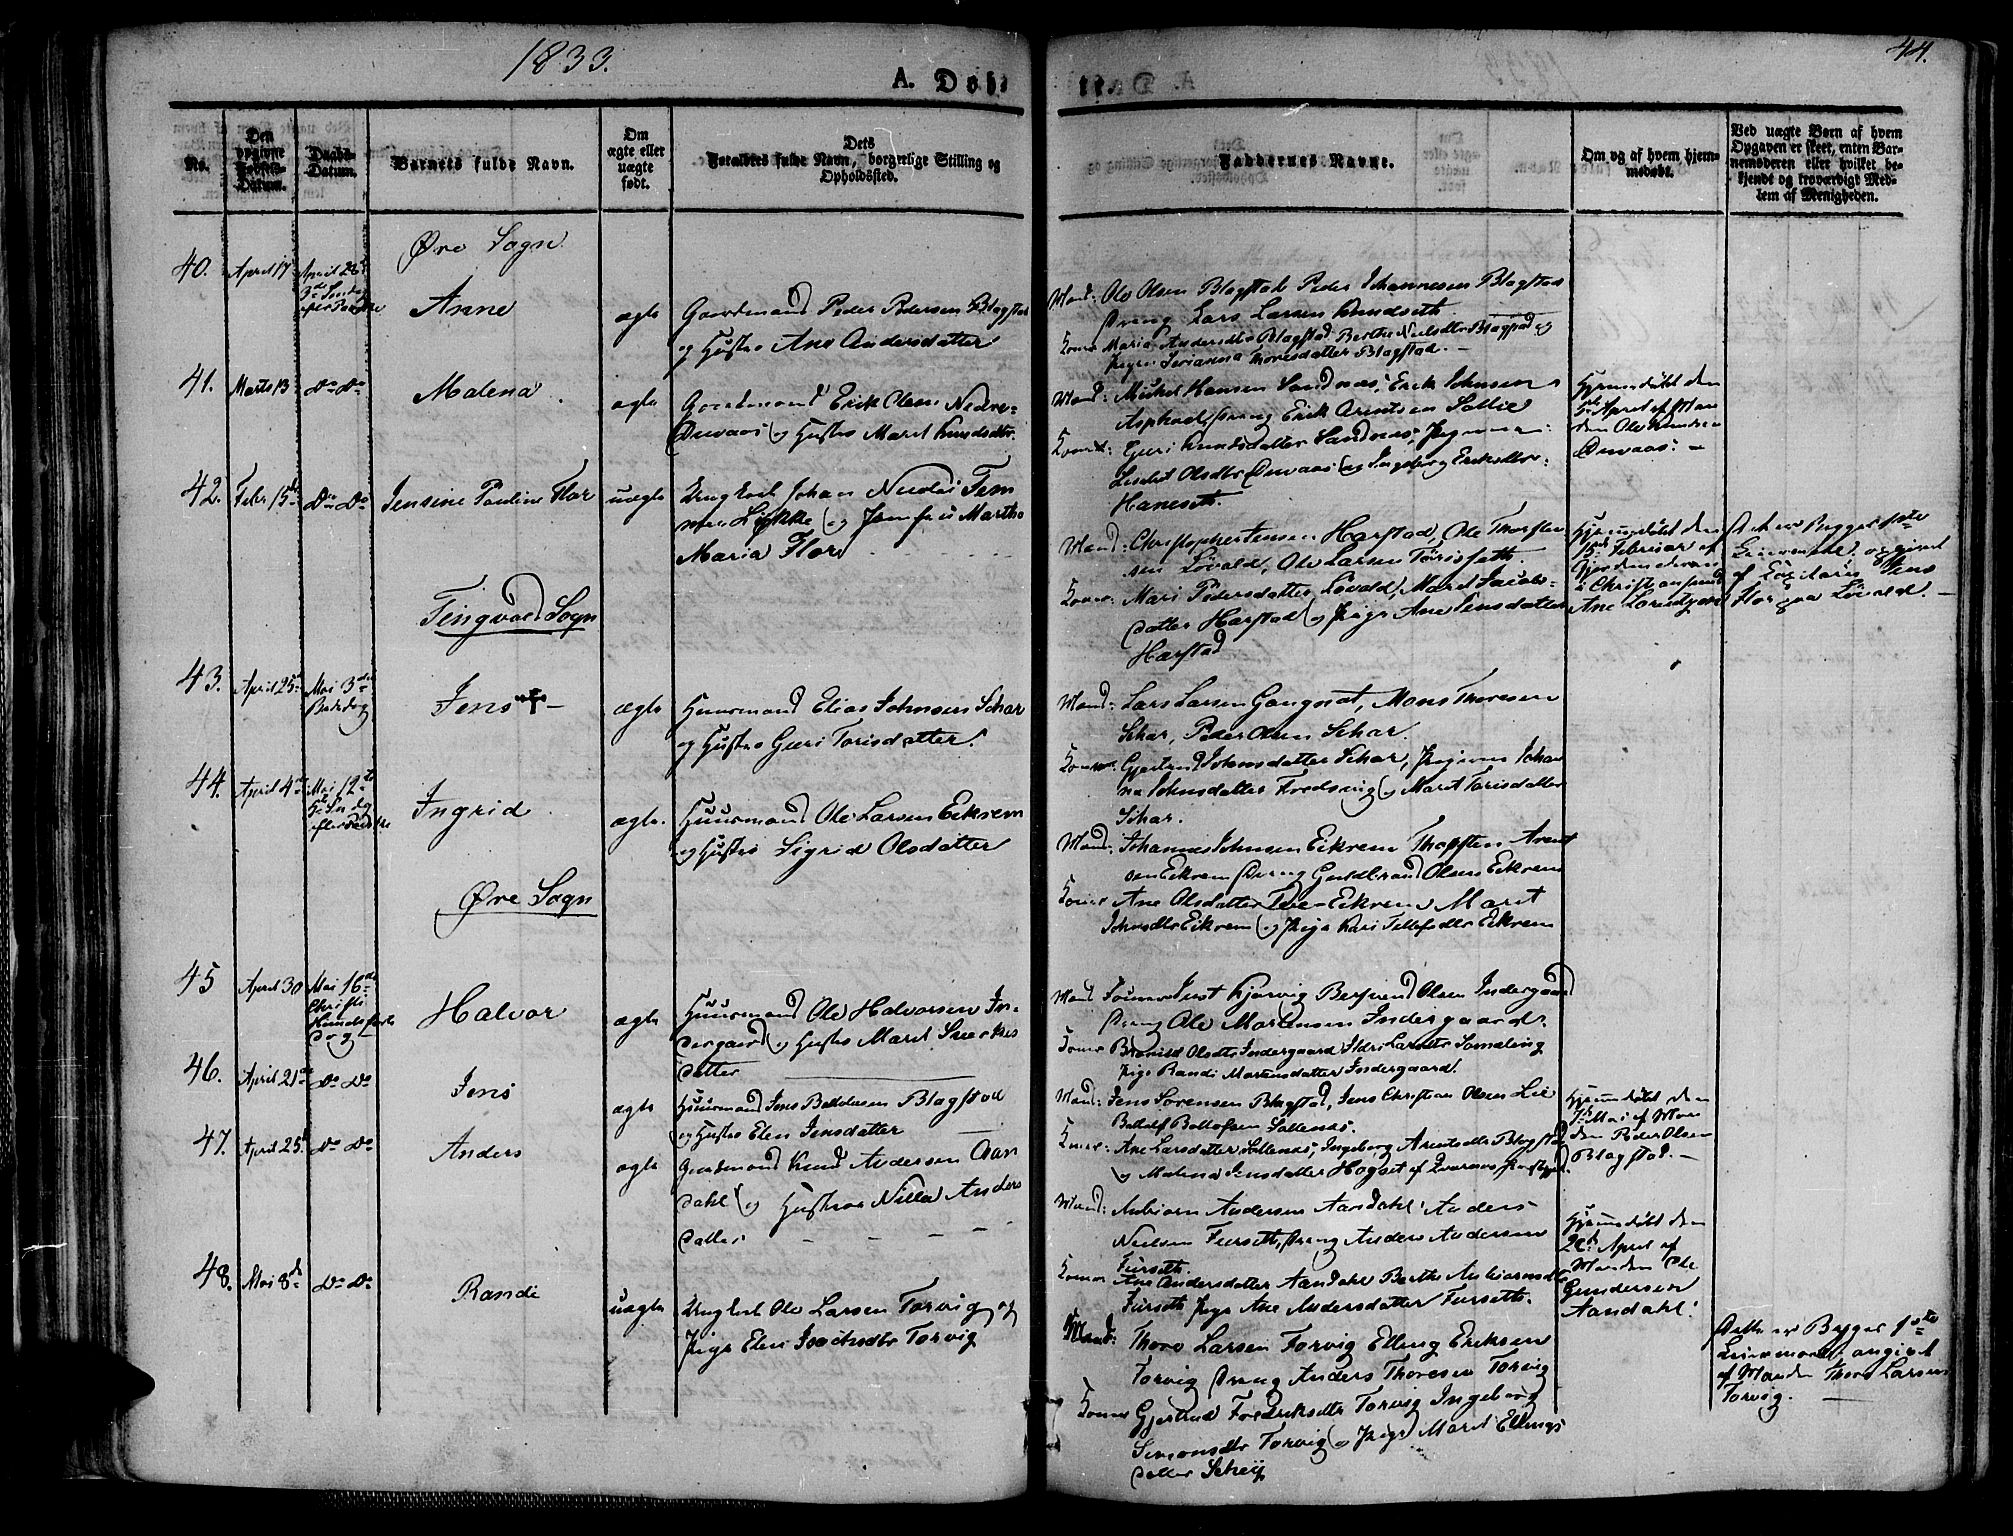 1833.
44.
A. Døb
te.
No.
Den opgivne Fødsels-Datum.
Daabs-Datum.
Barnets fulde Navn.
Om ægte eller uægte født.
Dets Forældres fulde Navn, borgerlige Stilling og Opholdssted.
Faddernes Navne.
Om og af hvem hjemmedøbt.
Ved uægte Børn af hvem Opgaven er skeet, enten Barnemoderen eller hvilket bekjendt og troværdigt Medlem af Menigheden.
Øre Sogn
40.
April 17
April 28
Anne
ægte
Gaardmand Peder Pedersen Blagstad
og Hustro Ane Andersdatter
Mænd: Ole Olsen Blagstad Peder Johannesen Blagstad
Dreng Lars Larsen Knudseth
Koner Marie Andersdtr Blagstad Berthe Nielsdtr Blagstad og
Thoresdatter Blagstad.
41.
Marts 13
Do Do
Malena
ægte
Gaardmand Erik Olsen Nedre-
og Hustro Marit Knudsdtr.
Mænd: Mikel Hansen Sandnæs, Erik Johnsen
Asphol, Dreng Erik Arntsen
Koner: Guri Knudsdatter Sandnæs, Pigerne
Olsdtr og Ingeborg Eriksdtr
Haneseth.
Hjemmedøbt den
5te April af Man
den Ole Knudsen
42.
Febr. 15de
Do Do
Jensine Pauline Flor
uægte
Ungkarl Johan Nicolai Tem
mer Lykke og Jomfru Martha
Maria Flor
Mænd: Christopher Jensen Harstad, Ole Thorsten
sen Løvold, Ole Larsen
Koner: Mari Pedersdatter Løvold, Marit Jacobs-
datter Harstad og Pige Ane Jensdatter
Harstad
Hjemmedøbt den
15de Februar af
Gjordemoderen
i Christiansund
Ane
Det er Begges 1ste
Leiermaal, opgivet
af Jens
Flor paa Løvold.
Tingvold Sogn
43.
April 25de
Mai 3die
Bededag
Jens
ægte
Huusmand Elias Johnsen Schar
og Hustro Guri Torisdatter.
Mænd: Lars Larsen Gangnat, Mons Thoresen
Schar, Peder Olsen Schar.
Koner: Gjertrud Johnsdatter Schar, Pigerne Johan
na Johnsdatter og Marit Torisdatter
Schar.
44.
April 4de
Mai 12te
Ingrid
ægte
Huusmand Ole Larsen Eikrem
og Hustro Sigrid Olsdatter
Mænd: Johannes Johnsen Eikrem Arent
sen Eikrem Dreng Guldbrand Olsen Eikrem
Koner Ane Olsdatter Eikrem Marit
Johnsdtr Eikrem og Pige Kari Eikrem
Øre Sogn
45
April 30
Mai 16de
Christi
Himmelfarts
dag
Halvor
ægte
Huusmand Ole Halvorsen In-
dergaard og Hustro Marit
datter
Mænd Just Olsen Indergaard
Dreng Ole Mortensen Indergaard.
Koner Olsdtr Indergaard Ildri Larsdtr
Pige Randi Mortensdatter Indergaard.
46.
April 21de
Do Do
Jens
ægte
Huusmand Jens Blagstad
og Hustro Elen Jensdatter
Mænd: Jens Sørensen Blagstad, Jens Christian Olsen Lie
Koner: Ane Larsdatter Ingeborg Arentsdtr Blagstad
og Malena Jensdatter Hogset af
Hjemmedøbt den
Mai af Man
den Peder Olsen
Blagstad.
47.
April 25de
Do Do
Anders
ægte
Gaardmand Knud Andersen Aan
dahl og Hustroe Nilla Anders
datter
Mænd: Andersen Aandahl Anders
Nielsen Furseth, Dreng Anders Andersen
Furseth.
Koner Ane Andersdatter Aandahl Berthe
Furseth Pige Ane Andersdatter Furseth.
Hjemmedøbt den
April af
Manden Ole
Gundersen
Aandahl.
48.
Mai 8de
Do Do
Randi
uægte
Ungkarl Ole Larsen Torvig og
Pige Elen Isachsdtr Torvig
Mænd: Thore Larsen Torvig Elling Eriksen
Torvig Dreng Anders Thoresen Torvig
Koner Gjertrud Fredriksdtr Torvig Ingeborg
Simonsdtr Torvig og Pige Marit Ellings
datter
Dette er Begges 1ste
Leiermaal angivet
af Manden Thore Larsen
Torvig.